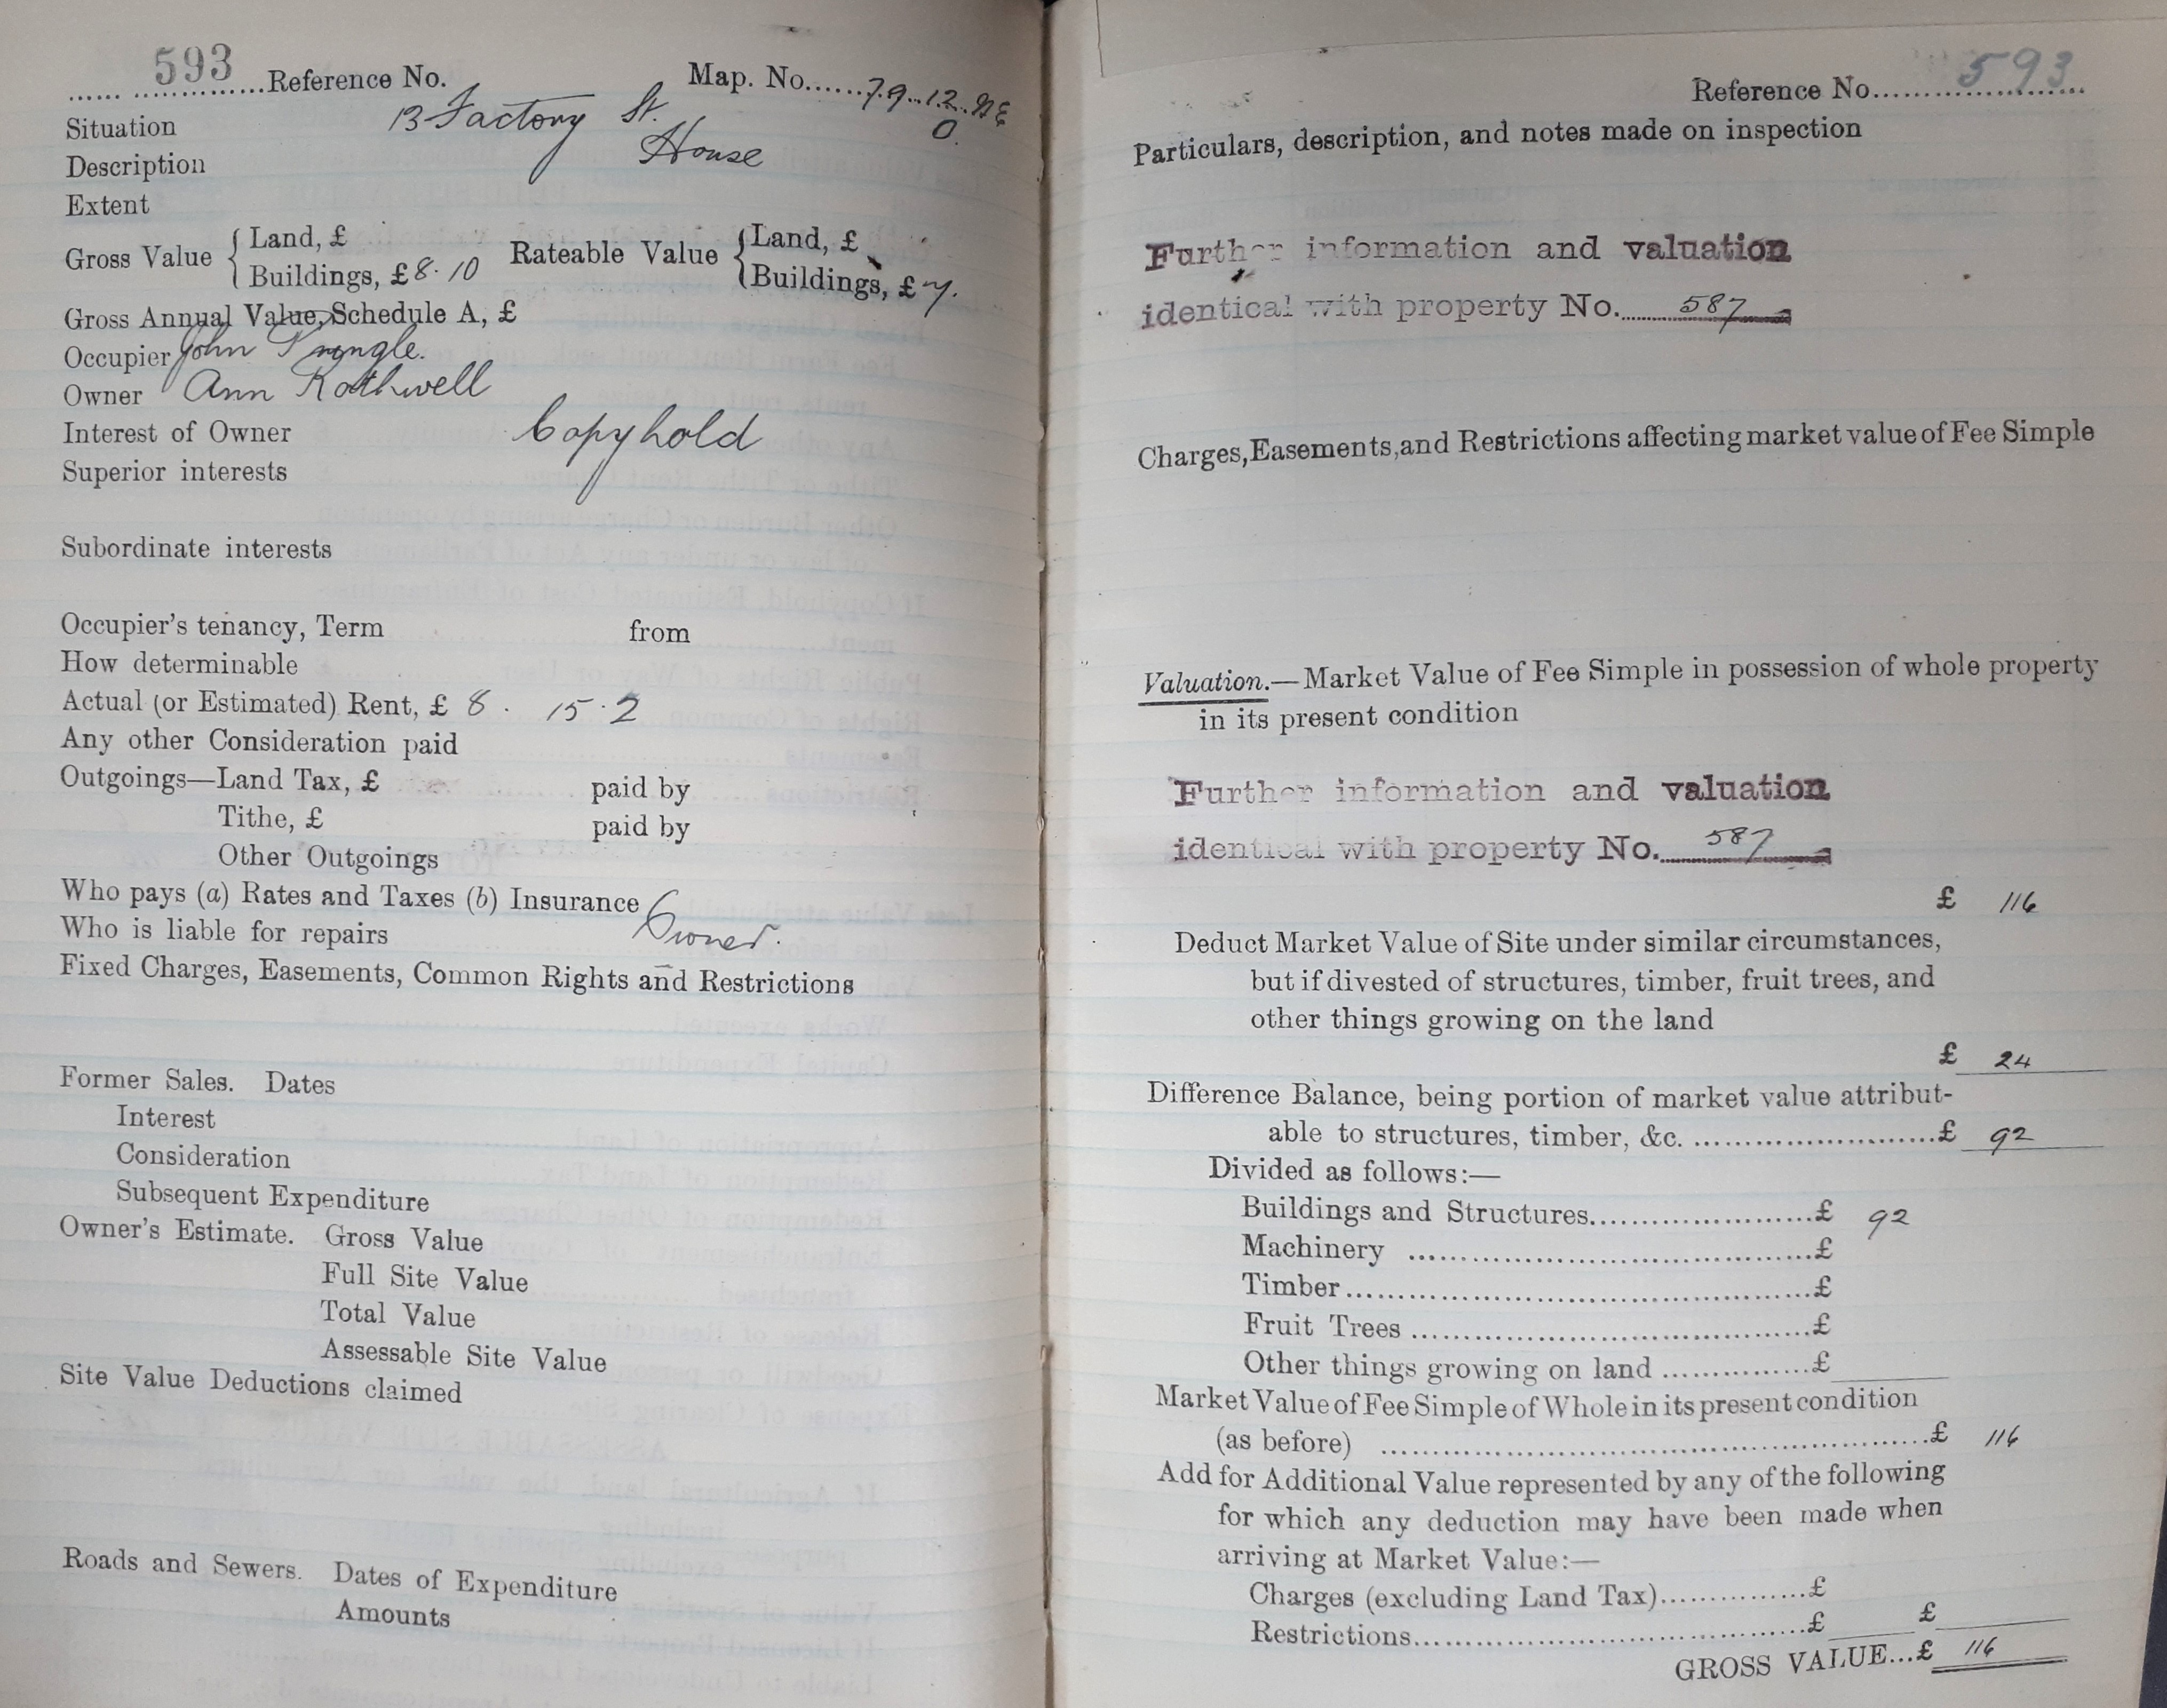 593 Reference No. Map. No. 79.12.NE
Situation 13 Factory St. O.
Description House
Extent
Gross Value { Land, £ Rateable Value { Land, £
Buildings, £ 8.10 Buildings, £ 7.
Gross Annual Value, Schedule A, £
Occupier John Pringle.
Owner Ann Rothwell
Interest of Owner Copyhold
Superior interests
Subordinate interests
Occupier's tenancy, Term from
How determinable
Actual (or Estimated) Rent, £ 8. 15.2
Any other Consideration paid
Outgoings—Land Tax, £ paid by
Tithe, £ paid by
Other Outgoings
Who pays (a) Rates and Taxes (b) Insurance
Who is liable for repairs Owner.
Fixed Charges, Easements, Common Rights and Restrictions
Former Sales. Dates
Interest
Consideration
Subsequent Expenditure
Owner's Estimate. Gross Value
Full Site Value
Total Value
Assessable Site Value
Site Value Deductions claimed
Roads and Sewers. Dates of Expenditure
Amounts
Reference No. 593
Particulars, description, and notes made on inspection
Further information and valuation
identical with property No. 587
Charges, Easements, and Restrictions affecting market value of Fee Simple
Valuation.—Market Value of Fee Simple in possession of whole property
in its present condition
Further information and valuation
identical with property No. 587
£ 116
Deduct Market Value of Site under similar circumstances,
but if divested of structures, timber, fruit trees, and
other things growing on the land
£ 24
Difference Balance, being portion of market value attribut-
able to structures, timber, &c. £ 92
Divided as follows:—
Buildings and Structures £ 92
Machinery £
Timber £
Fruit Trees £
Other things growing on land £
Market Value of Fee Simple of Whole in its present condition
(as before) £ 116
Add for Additional Value represented by any of the following
for which any deduction may have been made when
arriving at Market Value:—
Charges (excluding Land Tax) £
Restrictions £ £
GROSS VALUE...£ 116